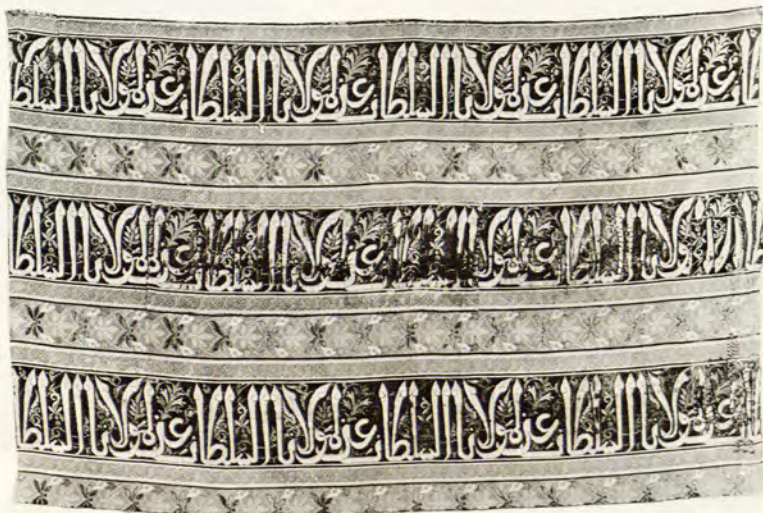 عز لمولانا السلطان عز لمولانا السلطان عز لمولانا السلطان عز لمولانا السلطا
عز لمولانا السلطان عز لمولانا السلطان عز لمولانا السلطان عز لمولانا السلطا
عز لمولانا السلطان عز لمولانا السلطان عز لمولانا السلطان عز لمولانا السلطا